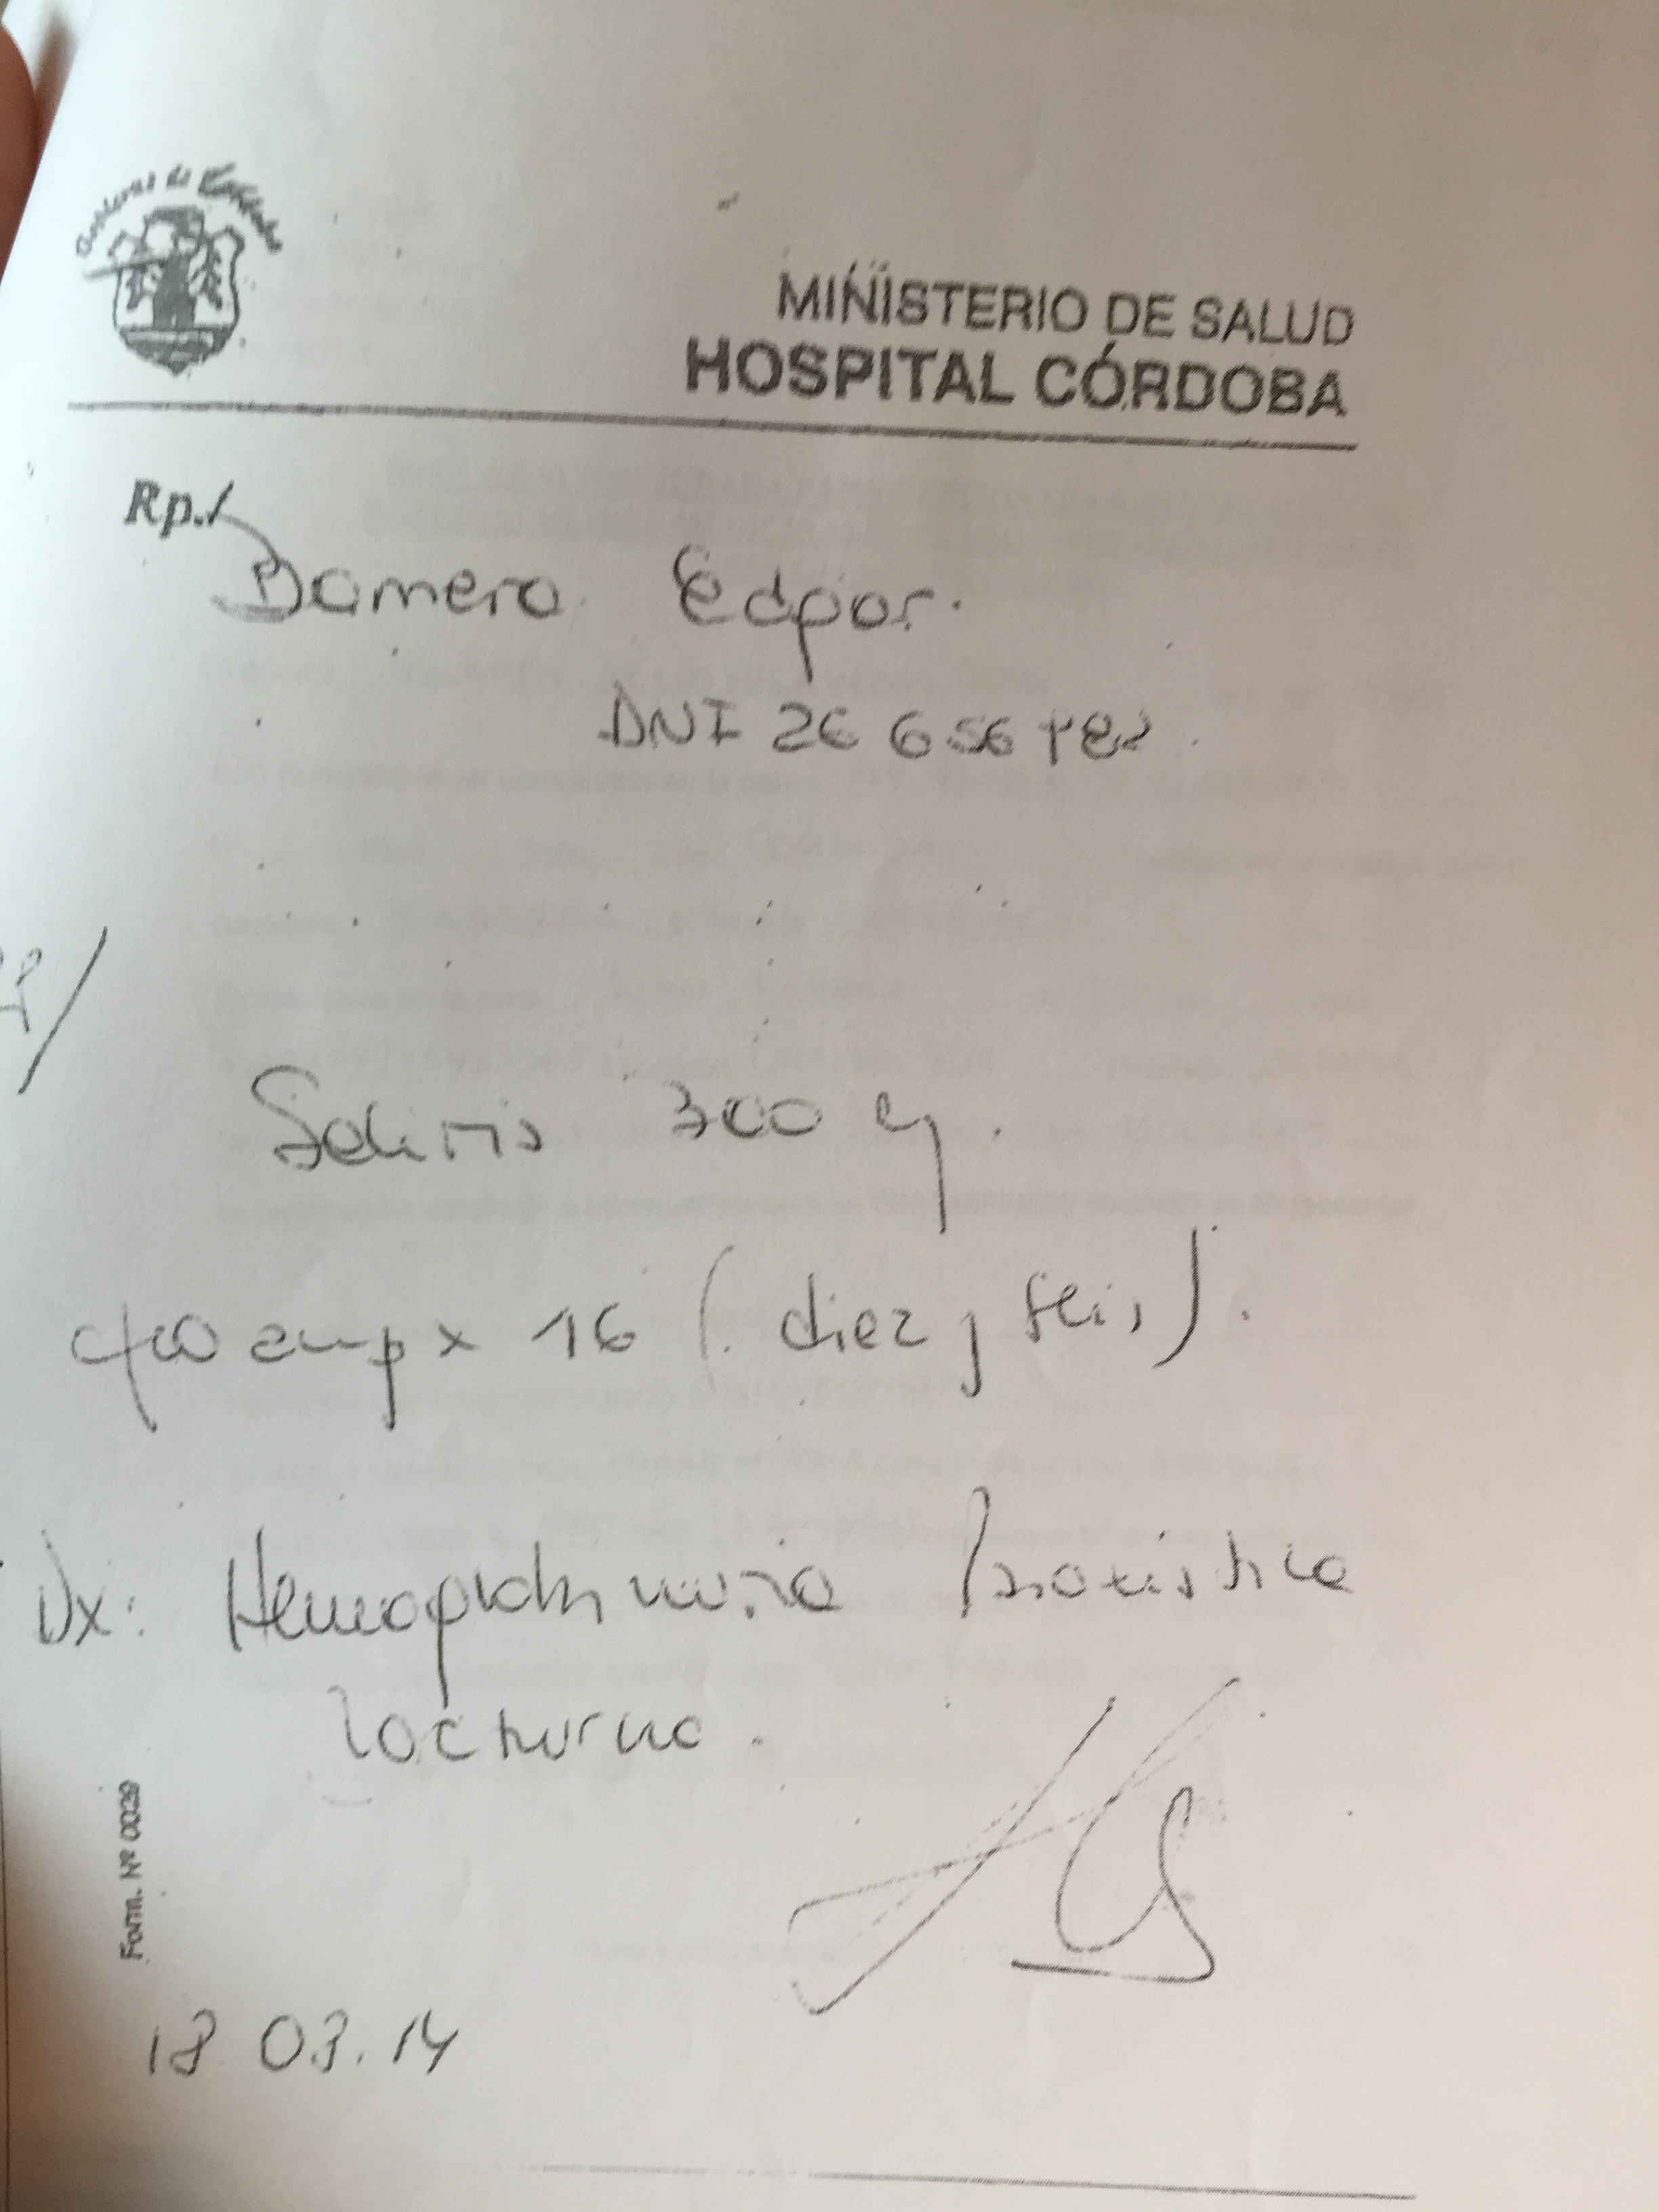 Gobierno de Córdoba
MINISTERIO DE SALUD
HOSPITAL CÓRDOBA
Rp./
Damero Edgar.
DNI 26 656
Soliris 300 mg.
amp x 16 (diez y seis).
Dx: Hemoglobinuria Paroxistica
Nocturna.
Form. Nº 0029
18 03.14